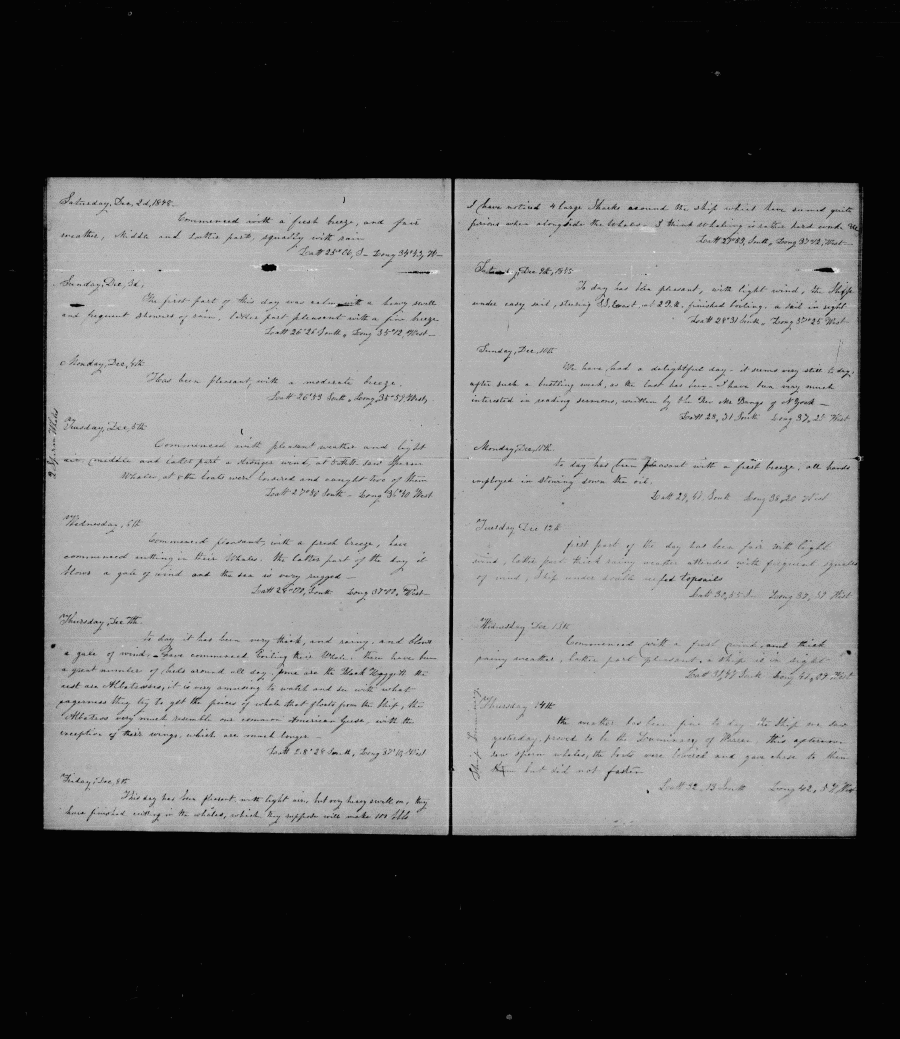 Saturday, Dec, 2d, 1848.
Commenced with a fresh breeze, and fair
weather, Middle and latter part, squally with rain
Latt 25°06, S– Long 34°43, W–
Sunday, Dec, 3d,
The first part of this day was calm with a heavy swell
and frequent showers of rain, latter part pleasant with a fine breeze
Latt 26°26 South, Long 35°12, West–
Monday, Dec, 4th
Has been pleasant, with a moderate breeze.
Latt 26°33 South, Long, 35°59 West,
Tuesday, Dec, 5th
2 Sperm Whales
Commenced with pleasant weather and light
air middle and latter part a stronger wind, at saw Sperm
Whales, at the boats were lowered and caught two of them
Latt 27°38 South – Long 36°40 West
Wednesday, 6th
Commenced pleasant, with a fresh breeze, have
commenced cutting in their Whales. the latter part of the day it
blows a gale of wind and the sea is very rugged –
Latt 28°00, South Long 37°02, West–
Thursday, Dec 7th.
To day it has been very thick, and rainy, and blows
a gale of wind, Have commenced boiling their Whale. There have been
a great number of birds around all day. Some are the Black Haggetts the
rest are Albatrosses, it is very amusing to watch and see with what
eagerness they try to get the pieces of whale that floats from the ship, the
Albatross very much resemble our common American Geese, with the
exception of their wings, which are much longer –
Latt 28°28 South, Long 37°10, West
Friday, Dec, 8th
This day has been pleasant with light air, but very heavy swell on, they
have finished cutting in the whales, which they suppose will make 100 bbls
I have noticed 4 large Sharks around the ship which have seemed quite
furious when alongside the Whales. I think Whaling is rather hard work
Latt 28°33, South, Long 37°12, West–
Saturday, Dec 9th, 1848
To day has been pleasant, with light wind, the Ship
under easy sail, steering finished boiling. a sail in sight
Latt 28°31 South, Long 37°25 West–
Sunday, Dec, 10th
We have had a delightful day – it seems very still to day,
after such a bustling week, as the last has been – I have been very much
interested in reading sermons, written by the Rev Mr Bangs of N York –
Latt 28, 31 South Long 37, 25 West
Monday, Dec, 11th
To day has been pleasant with a fresh breeze, all hands
employed in stowing down the oil.
Latt 29, South Long 38, West
Tuesday Dec 12th
first part of the day has been fair with light
wind, latter part thick rainy weather attended with frequent squalls
of wind, Ship under double reefed topsails
Latt 30, 55 S– Long West
Wednesday Dec 13th
Commenced with a fresh wind, and thick
rainy weather, latter part pleasant, a ship is in sight
Latt 31, 47 South Long 41, 04 West
Thursday 14th
Ship
the weather has been fine to day the Ship we saw
yesterday, proved to be the of Warren. this afternoon
saw sperm whales, the boats were lowered and gave chase to them
but did not fasten
Latt 32, 13 South Long 42, West